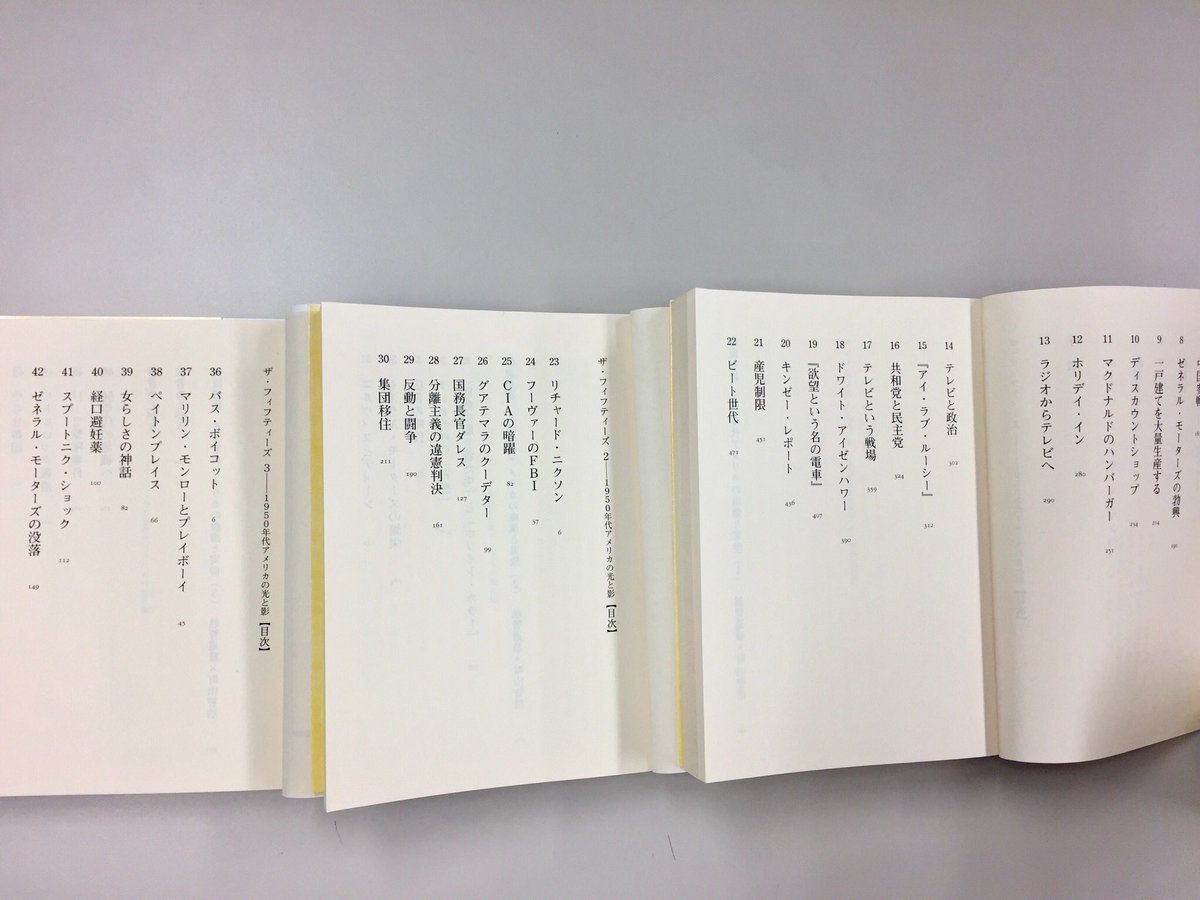 8 ゼネラル・モーターズの勃興 191
9 一戸建てを大量生産する 214
10 ディスカウントショップ 234
11 マクドナルドのハンバーガー 251
12 ホリデイ・イン 280
13 ラジオからテレビへ 290
14 テレビと政治 302
15 『アイ・ラブ・ルーシー』 312
16 共和党と民主党 324
17 テレビという戦場 359
18 ドワイト・アイゼンハワー 390
19 『欲望という名の電車』 407
20 キンゼー・レポート 436
21 産児制限 451
22 ビート世代 471
ザ・フィフティーズ 2――1950年代アメリカの光と影【目次】
23 リチャード・ニクソン 6
24 フーヴァーのFBI 37
25 CIAの暗躍 82
26 グアテマラのクーデター 99
27 国務長官ダレス 127
28 分離主義の違憲判決 161
29 反動と闘争 190
30 集団移住 211
ザ・フィフティーズ 3――1950年代アメリカの光と影【目次】
36 バス・ボイコット 6
37 マリリン・モンローとプレイボーイ 43
38 ペイトンプレイス 66
39 女らしさの神話 82
40 経口避妊薬 100
41 スプートニク・ショック 112
42 ゼネラル・モーターズの没落 149